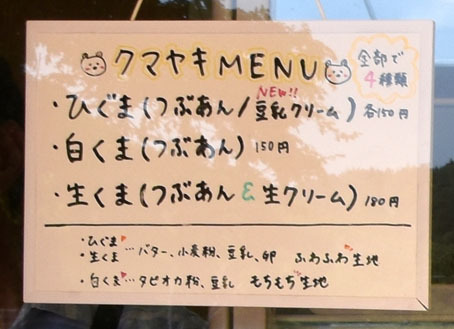 クマヤキMENU
全部で
4種類
NEW!!
・ひぐま(つぶあん/豆乳クリーム) 各150円
・白くま(つぶあん) 150円
・生くま(つぶあん&生クリーム) 180円
・ひぐま
・生くま …バター、小麦粉、豆乳、卵 ふわふわ生地
・白くま…タピオカ粉、豆乳 もちもち生地